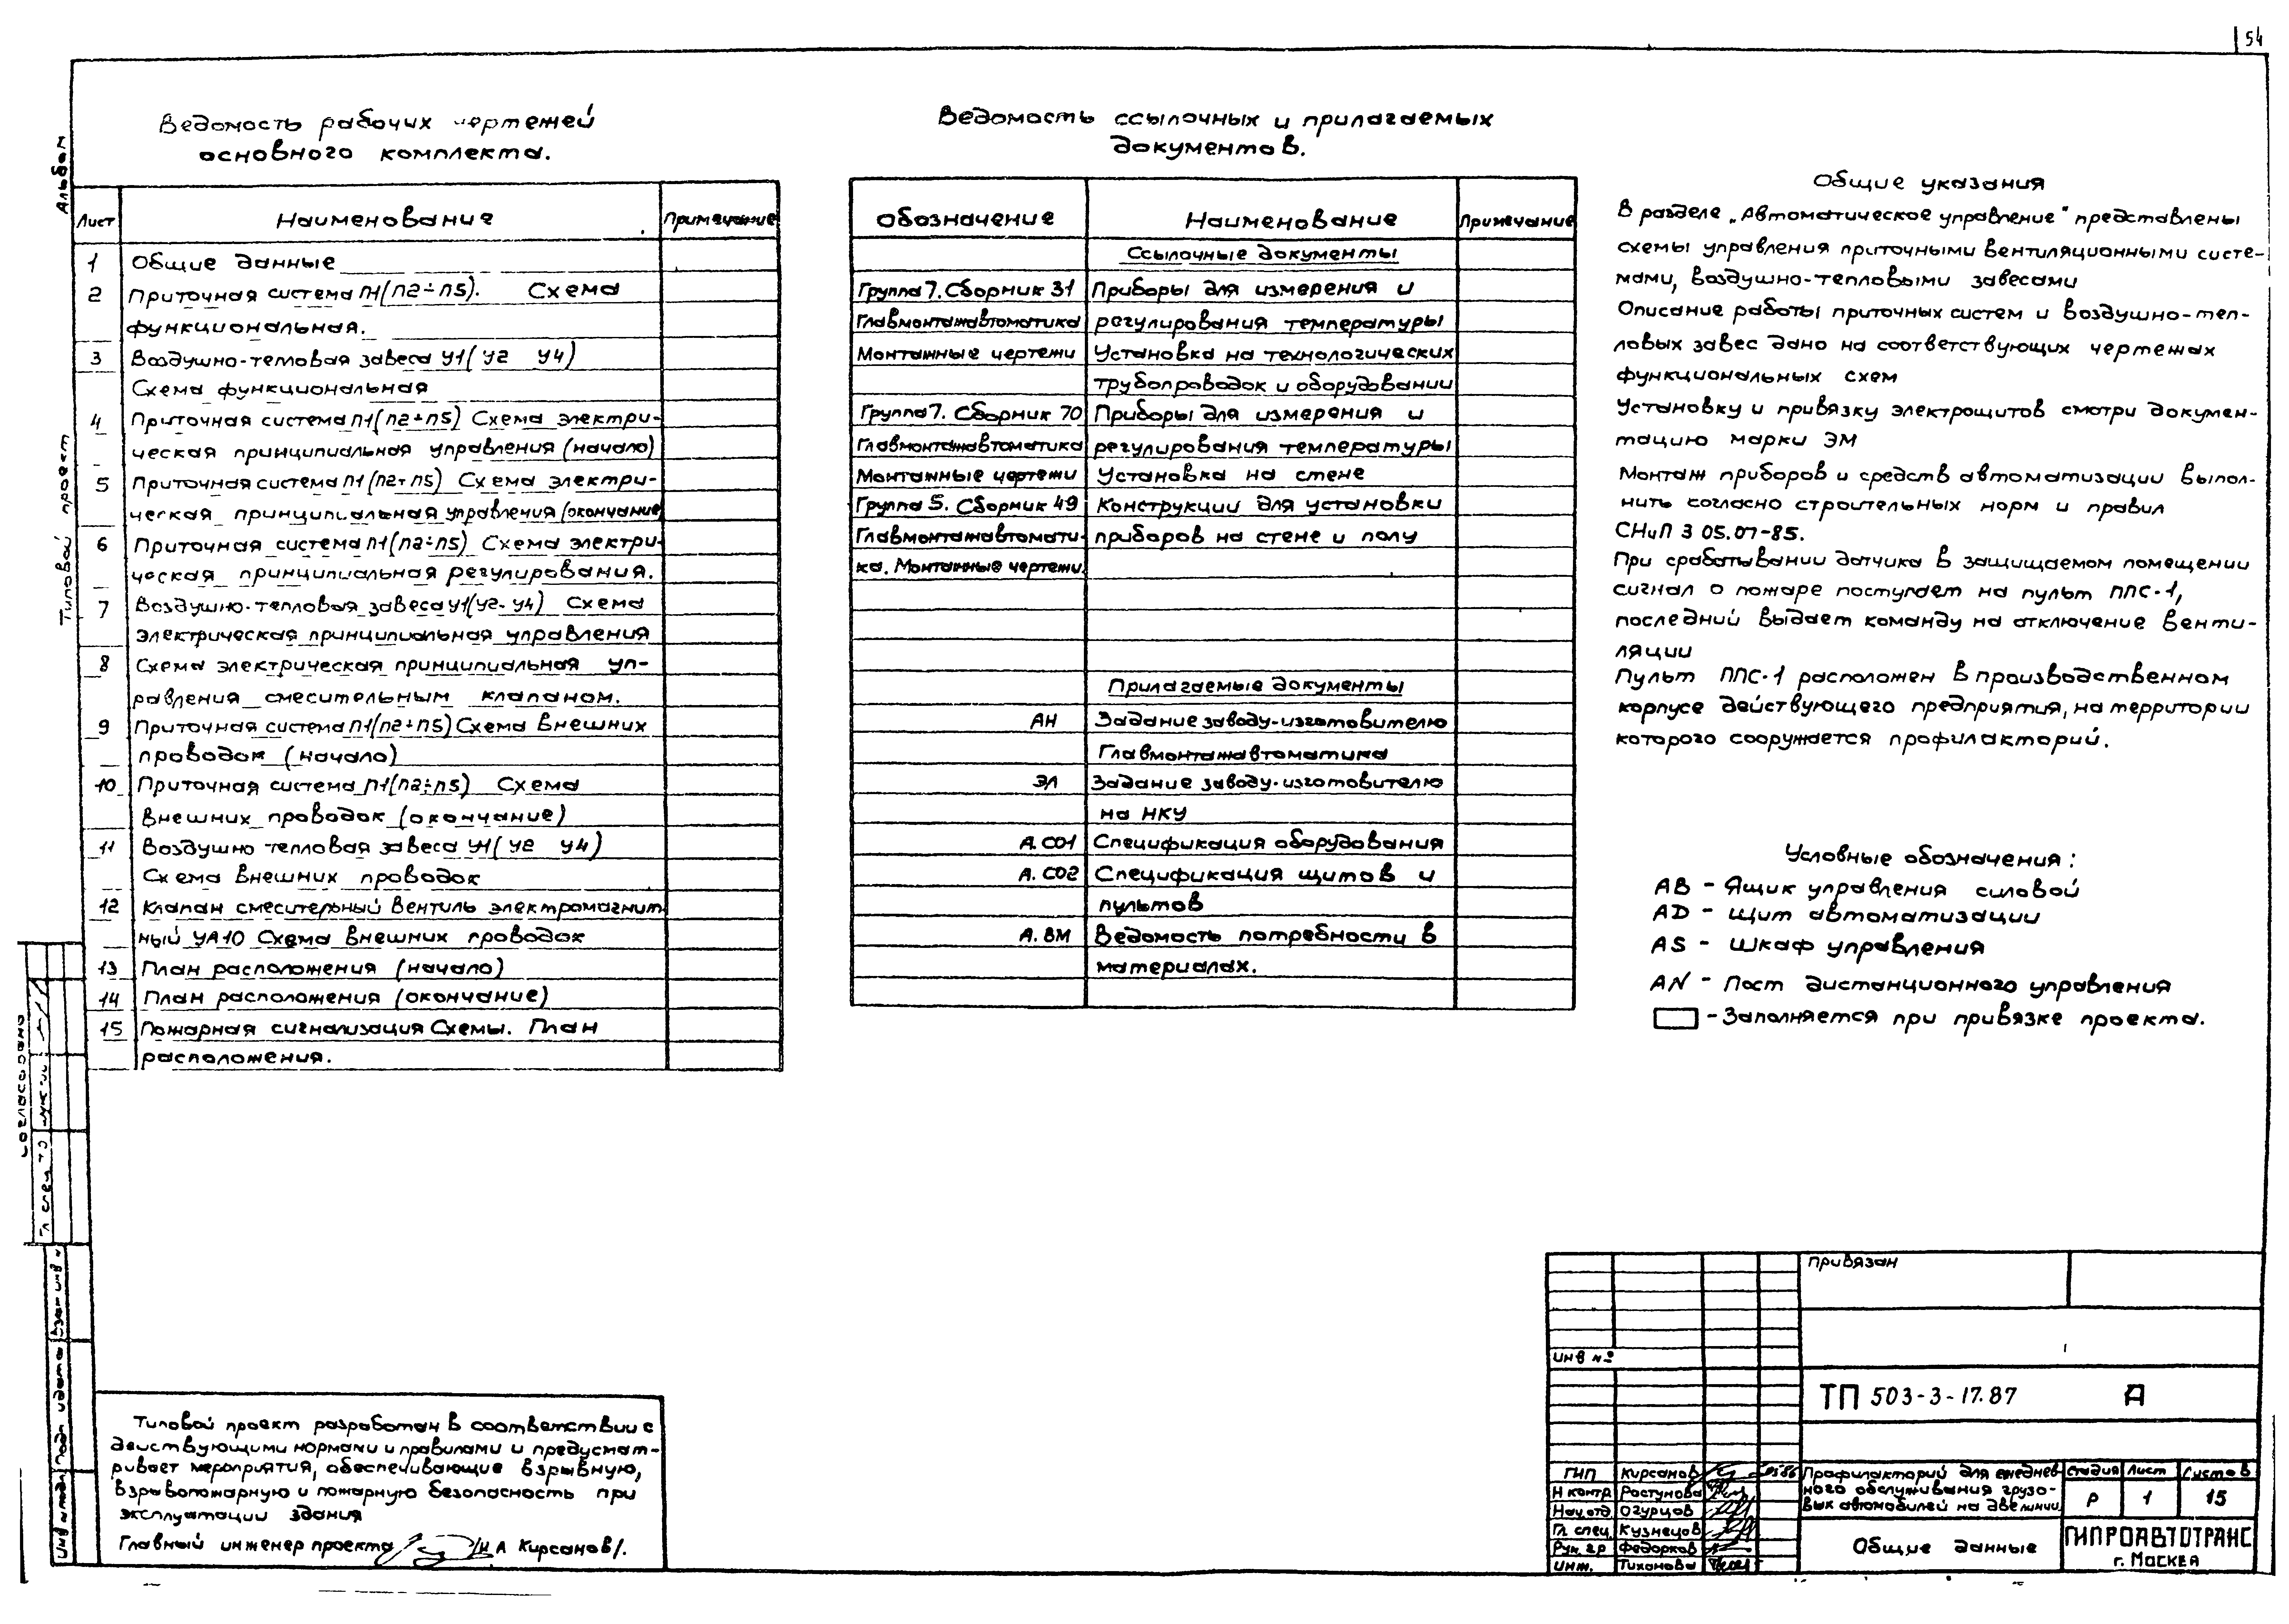 54
Ведомость рабочих чертежей
основного комплекта.
Лист Наименование Примечание
1 Общие данные
2 Приточная система П1(П2÷П5). Схема
функциональная.
3 Воздушно-тепловая завеса У1(У2 У4)
Схема функциональная
4 Приточная система П1(П2÷П5) Схема электри-
ческая принципиальная управления (начало)
5 Приточная система П1(П2÷П5) Схема электри-
ческая принципиальная управления (окончание
6 Приточная система П1(П2÷П5) Схема электри-
ческая принципиальная регулирования.
7 Воздушно-тепловая завеса У1(У2-У4) Схема
электрическая принципиальная управления
8 Схема электрическая принципиальная уп-
равления смесительным клапаном.
9 Приточная система П1(П2÷П5) Схема внешних
проводок (начало)
10 Приточная система П1(П2÷П5) Схема
внешних проводок (окончание)
11 Воздушно тепловая завеса У1(У2 У4)
Схема внешних проводок
12 Клапан смесительный Вентиль электромагнит
ный УА10 Схема внешних проводок
13 План расположения (начало)
14 План расположения (окончание)
15 Пожарная сигнализация Схемы. План
расположения.
Ведомость ссылочных и прилагаемых
документов.
Обозначение Наименование Примечание
Ссылочные документы
Группа 7. Сборник 31 Приборы для измерения и
Главмонтажавтоматика регулирования температуры
Монтажные чертежи Установка на технологических
трубопроводох и оборудовании
Группа 7. Сборник 70 Приборы для измерения и
Главмонтажавтоматика регулирования температуры
Монтажные чертежи Установка на стене
Группа 5. Сборник 49 Конструкции для установки
Главмонтажавтомати- приборов на стене и полу
ка. Монтажные чертежи.
Прилагаемые документы
АН Задание заводу-изготовителю
Главмонтажавтоматика
ЭЛ Задание заводу-изготовителю
на НКУ
А. СО1 Спецификация оборудования
А. СО2 Спецификация щитов и
пультов
А. ВМ Ведомость потребности в
материалах.
Общие указания
В разделе „Автоматическое управление" представлены
схемы управления приточными вентиляционными систе-
мами, воздушно-тепловыми завесами
Описание работы приточных систем и воздушно-теп-
ловых завес дано на соответствующих чертежах
функциональных схем
Установку и привязку электрощитов смотри докумен-
тацию марки ЭМ
Монтаж приборов и средств автоматизации выпол-
нить согласно строительных норм и правил
СНиП 3 05.07-85.
При срабатывании датчика в защищаемом помещении
сигнал о пожаре поступает на пульт ППС-1,
последний выдает команду на отключение венти-
ляции
Пульт ППС-1 расположен в производственном
корпусе действующего предприятия, на территории
которого сооружается профилакторий.
Условные обозначения:
АВ - Ящик управления силовой
AD - Щит автоматизации
AS - Шкаф управления
AN - Пост дистанционного управления
- Заполняется при привязке проекта.
Альбом
Типовой проект
Согласовано
Гл спец ТО
Взам инв №
Подп и дата
Инв № подл
Типовой проект разработан в соответствии с
действующими нормами и правилами и предусмат-
ривает мероприятия, обеспечивающие взрывную,
взрывопожарную и пожарную безопасность при
эксплуатации здания
Главный инженер проекта /Н А Кирсанов/.
Привязан
Инв №
ТП 503-3-17.87 А
ГИП Кирсанов
Н контр Ростунова
Нач. отд Огурцов
Гл. спец. Кузнецов
Рук. гр Федорков
Инж. Тихонова
Профилакторий для ежеднев
ного обслуживания грузо-
вых автомобилей на две линии
Стадия Лист Листов
Р 1 15
Общие данные
ГИПРОАВТОТРАНС
г. Москва